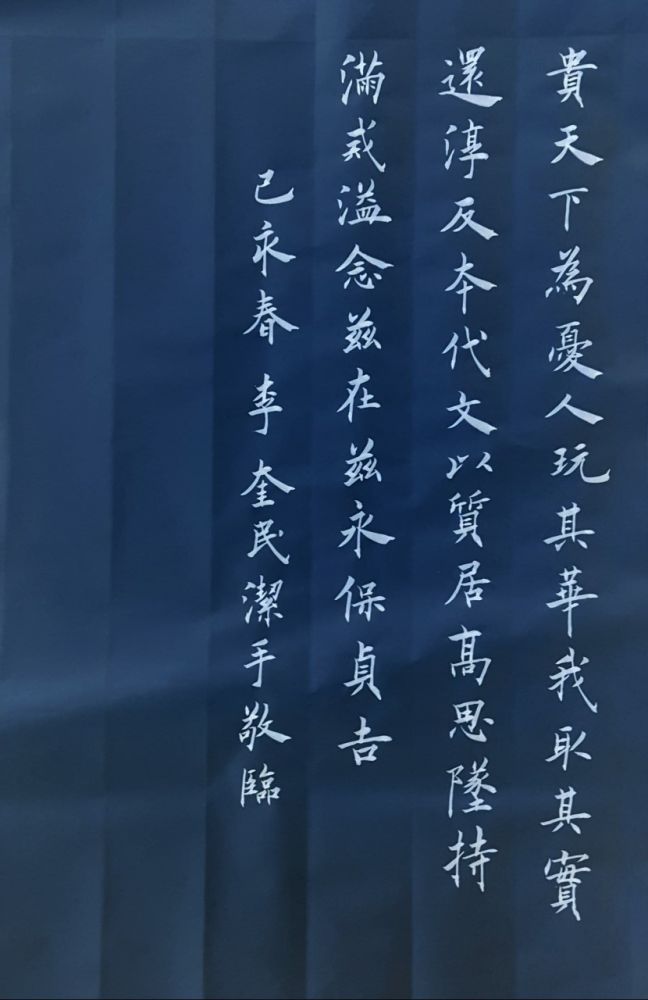 貴天下為憂人玩其華我取其實
還淳反本代文以質居高思墜持
滿戒溢念茲在茲永保貞吉
己永春李奎民潔手敬臨